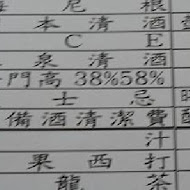 尼 根
本 清 酒
C E
泉 清 酒
門高 38%58%
士 忌
備酒清潔費
汁
果 西 打
龍 茶